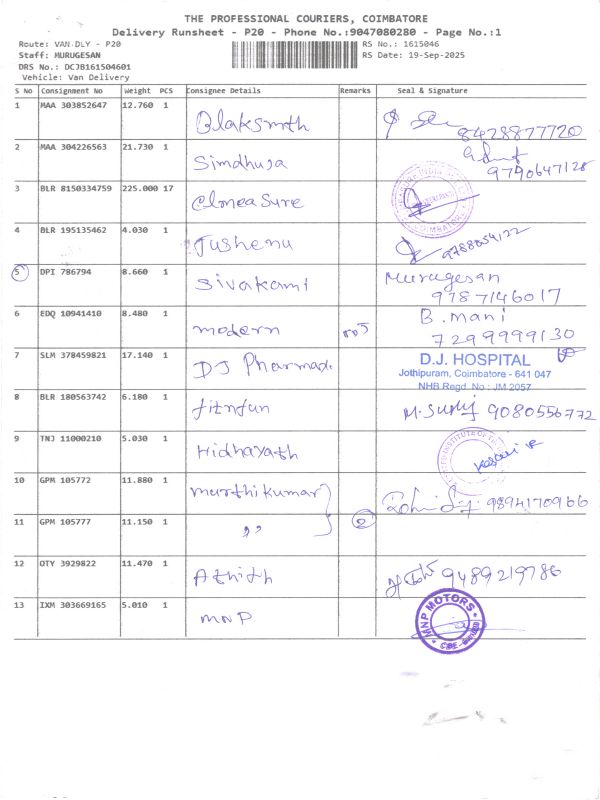 THE PROFESSIONAL COURIERS, COIMBATORE
Delivery Runsheet - P20 - Phone No.:9047080280 - Page No.:1
Route: VAN DLY - P20 RS No.: 1615046
Staff: MURUGESAN RS Date: 19-Sep-2025
DRS No.: DCJB161504601
Vehicle: Van Delivery
S No Consignment No Weight PCS Consignee Details Remarks Seal & Signature
1 MAA 303852647 12.760 1 Blaksmith 8428877720
2 MAA 304226563 21.730 1 Simdhuja 9790647128
3 BLR 8150334759 225.000 17 ElmeaSure COIMBATORE
4 BLR 195135462 4.030 1 9788054122
5 DPI 786794 8.660 1 Sivakami Murugesan
9787146017
6 EDQ 10941410 8.480 1 modern B. mani
7299999130
7 SLM 378459821 17.140 1 DJ D.J. HOSPITAL
Jothipuram, Coimbatore - 641 047
NHB Regd. No : JM 2057
8 BLR 180563742 6.180 1 9080556772
9 TNJ 11000210 5.030 1 Hidhayath INSTITUTE OF
10 GPM 105772 11.880 1 murthikumar 9894170966
11 GPM 105777 11.150 1 ,, 2
12 OTY 3929822 11.470 1 Athith 9489219786
13 IXM 303669165 5.010 1 MNP MNP MOTORS